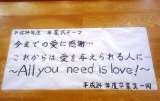 平成24年度 卒業式テーマ
今までの愛に感謝…
これからは愛を与えられる人に…
~All you need is love!~
平成24年度卒業生一同